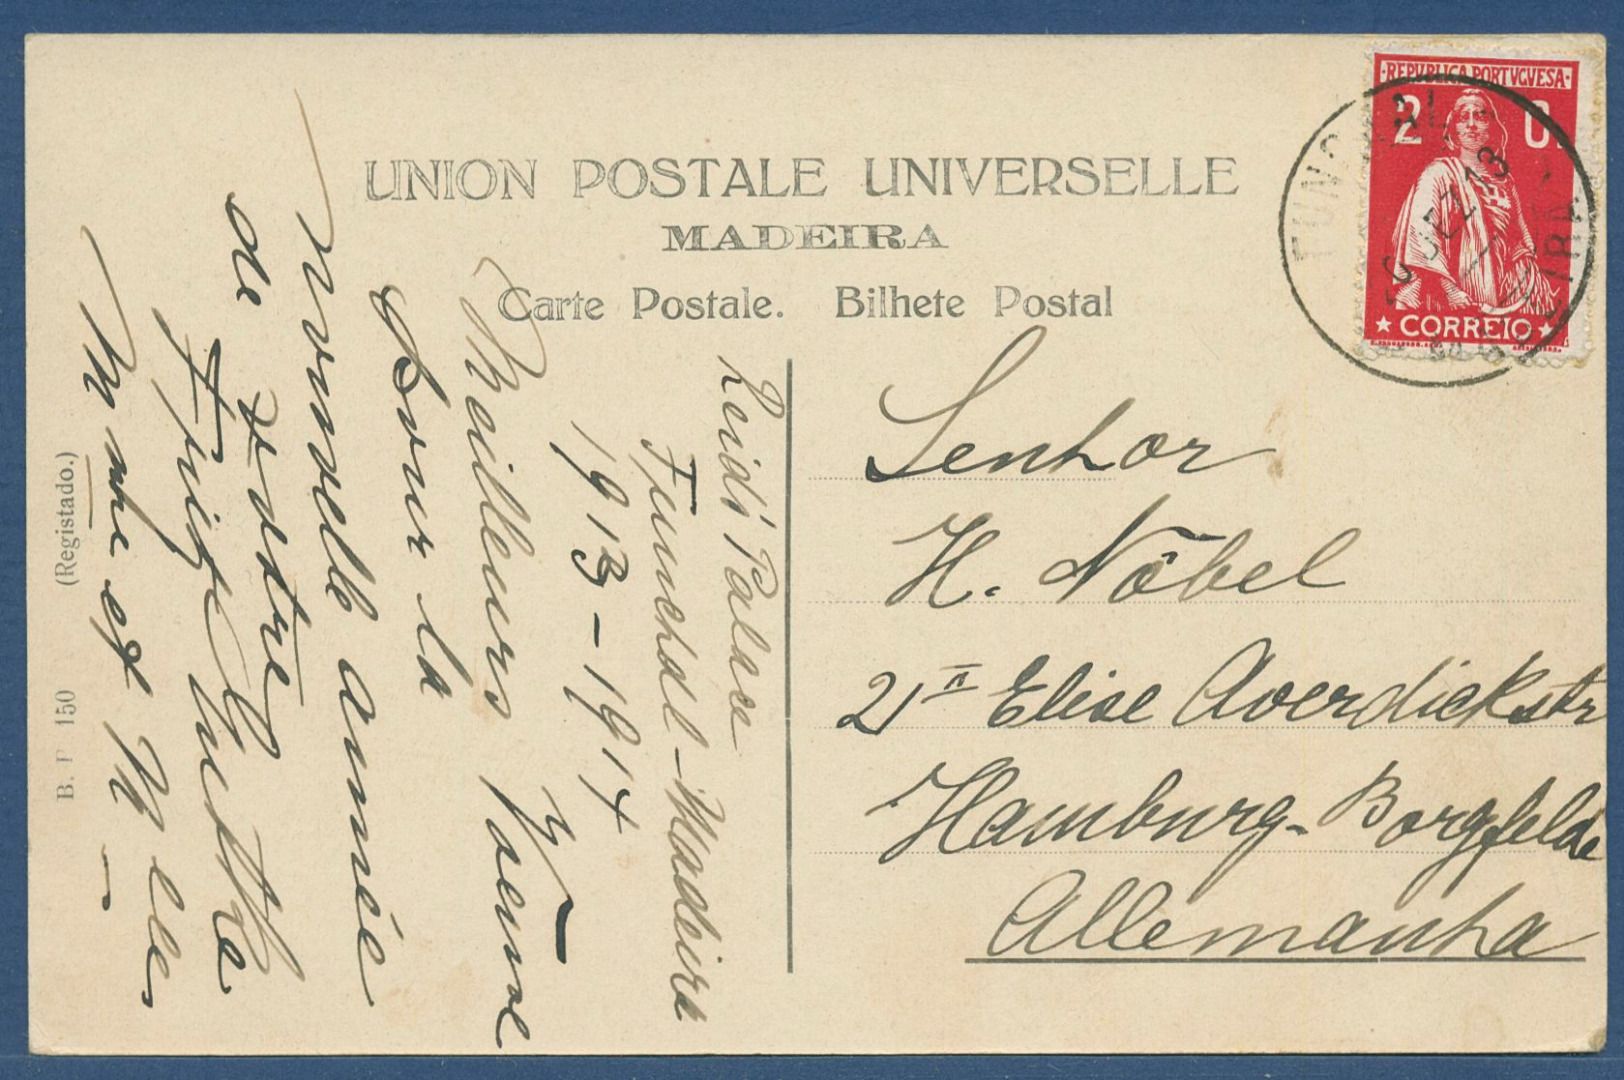 UNION POSTALE UNIVERSELLE
MADEIRA
Carte Postale. Bilhete Postal
REPUBLICA PORTUGUESA
2 C
CORREIO
FUNCHAL
DEZ 13
MADEIRA
Senhor
H. Nöbel
21 II Elise Averdickstr
Hamburg-Borgfelde
Allemanha
Reid's Palace
Funchal-Madeira
1913-1914
Meilleurs voeux
pour la
nouvelle année
de votre
Fritz
Mme et Mlle
(Registado.)
B. P 150